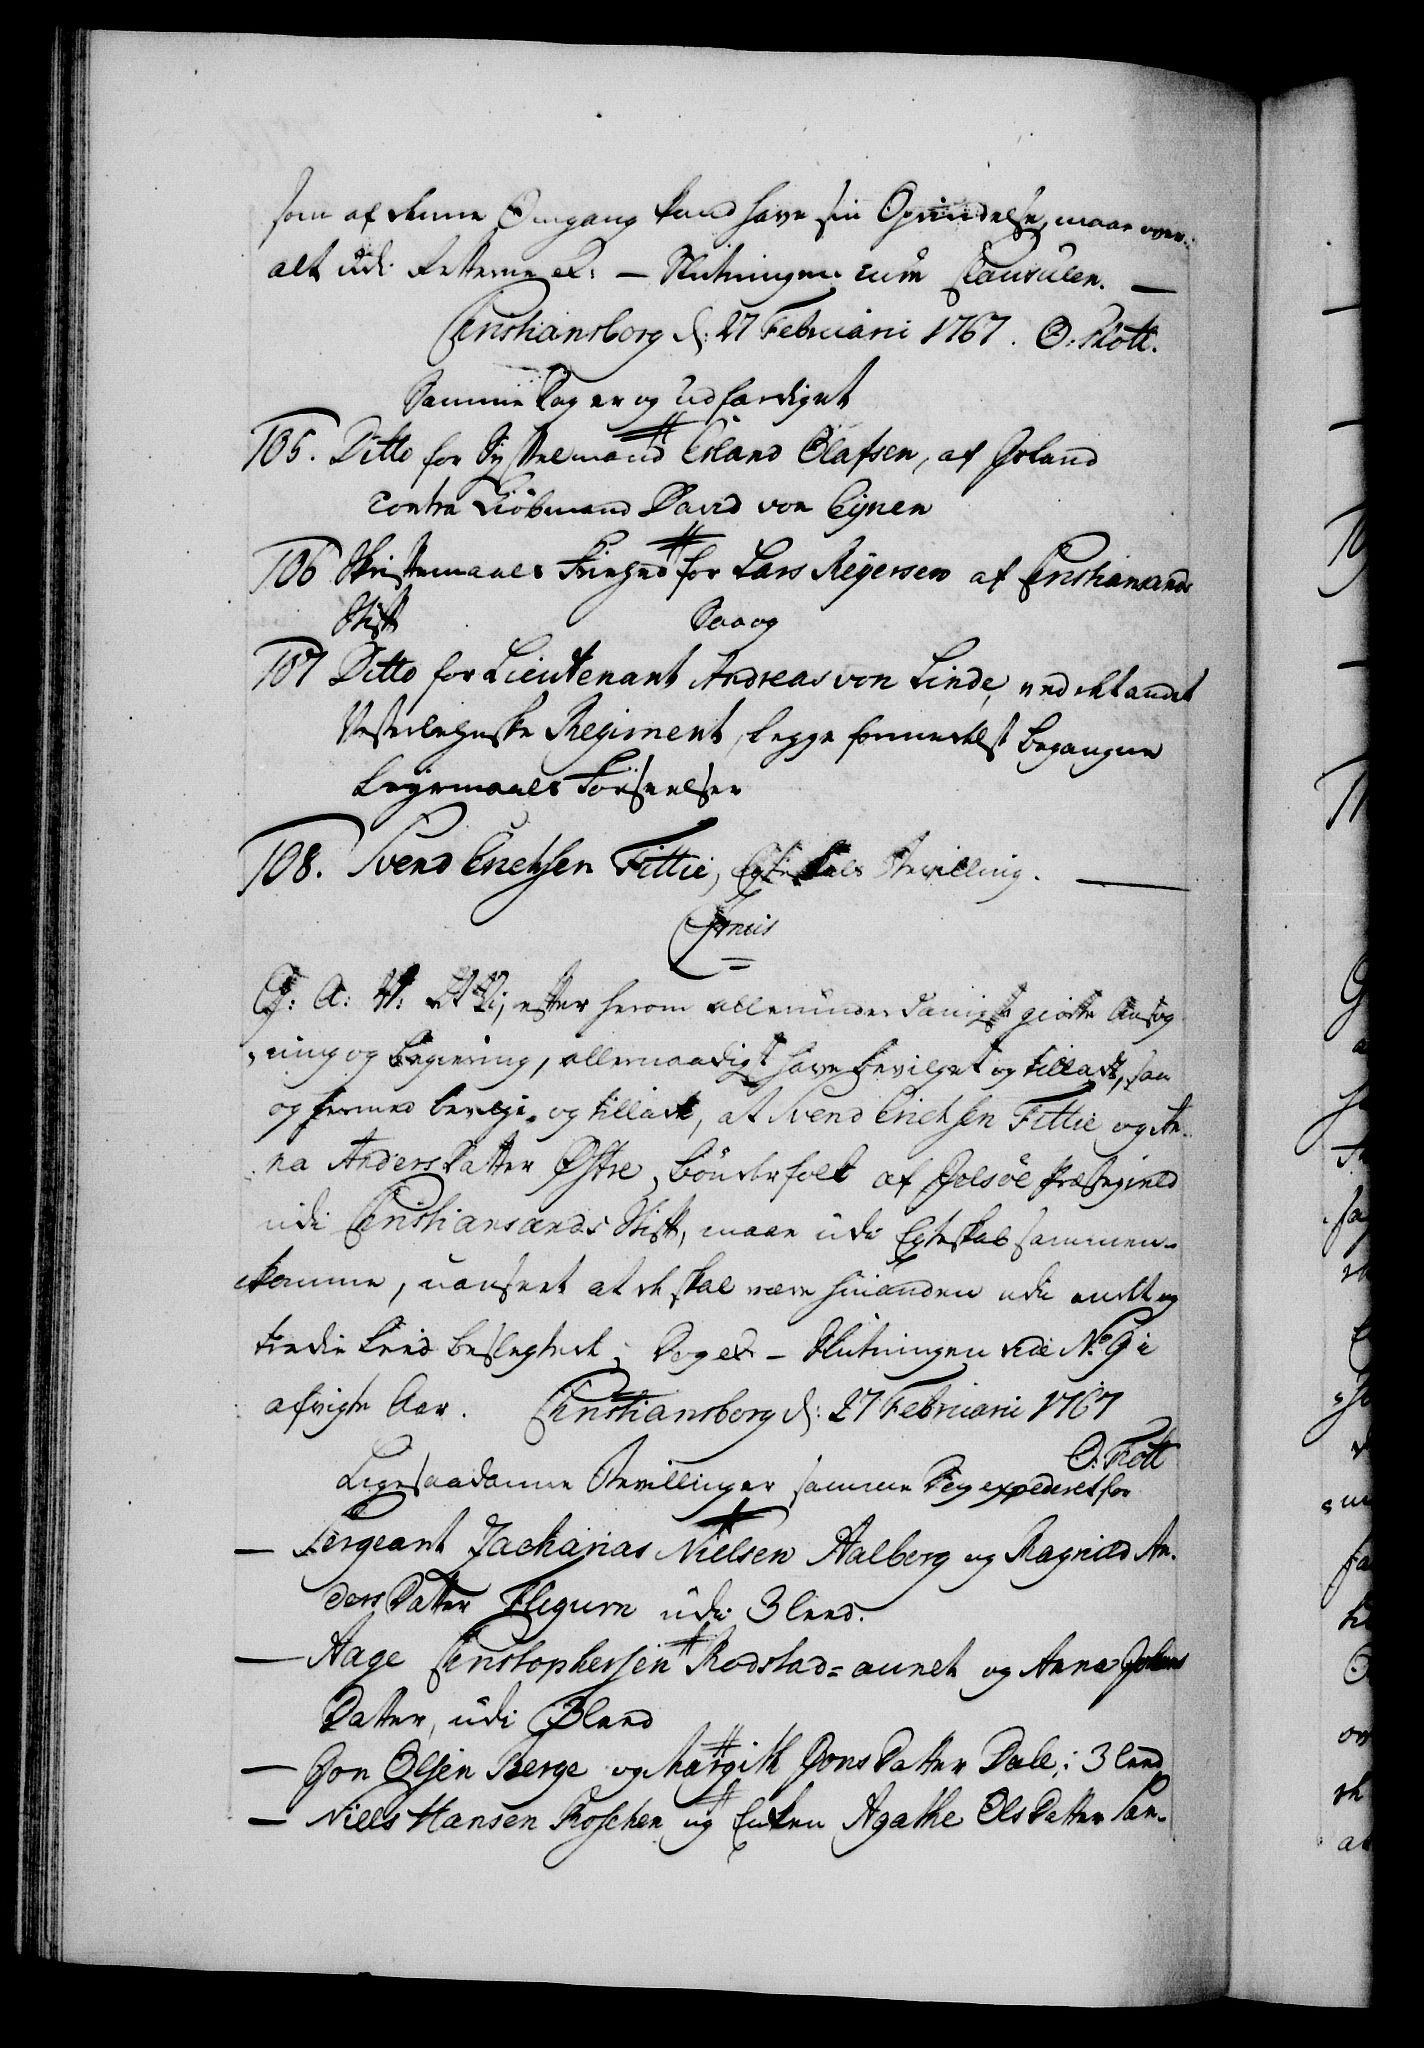 som af denne Omgang kand have sin Oprindelse, maae over¬
alt udi Retterne etc: — Slutningen cum Clausulen. —
Christiansborg d: 27 Februarii 1767. O. Thott.
Samme Dag er og Udfærdiget
105. Ditto for Sysselmand Erland Olafsen, af Island
contra Kiøbmand David von Eynen
106 Skriftemaals Friehed for Lars Reyersen af Christiansands
Stift Saa og
107 Ditto for Lieutenant Andreas von Linde, ved det andet
Vesterlehnske Regiment, begge formedelst begangne
Leyermaals Forseelser
108. Svend Erichsen Fittie, Egteskabs Bevilling. —
Gratis
G: A: V: At Vi, efter herom allerunderdanigst giorte Ansøg¬
ning og Begiering, allernaadigst have bevilget og tilladt, saa
og hermed bevilge og tillade, at Svend Erichsen Fittie og An¬
na Anders Datter Østre, bønderfolk af Holsøe Præstegield
udi Christiansands Stift, maae udi Egteskab sammen¬
komme, uanseet at de skal være hinanden udi andet og
tredie Leed beslegtede; Dog etc — Slutningen vide No 9 i
afvigte Aar. Christiansborg d: 27 Februarii 1767
O. Thott
Ligesaadanne Bevillinger samme Dag expederet for
— Sergeant Zacharias Nielsen Aalberg og Ragnild An¬
ders Datter Flegum udi 3 leed.
— Aage Christophersen Rodstad=aunet og Anna Johans
Datter, udi 3 leed
— Jon Olsen Berge og Margith Jons Datter Dale, i 3 leed
— Niels Hansen Roschen og Enken Agathe Ols Datter San¬